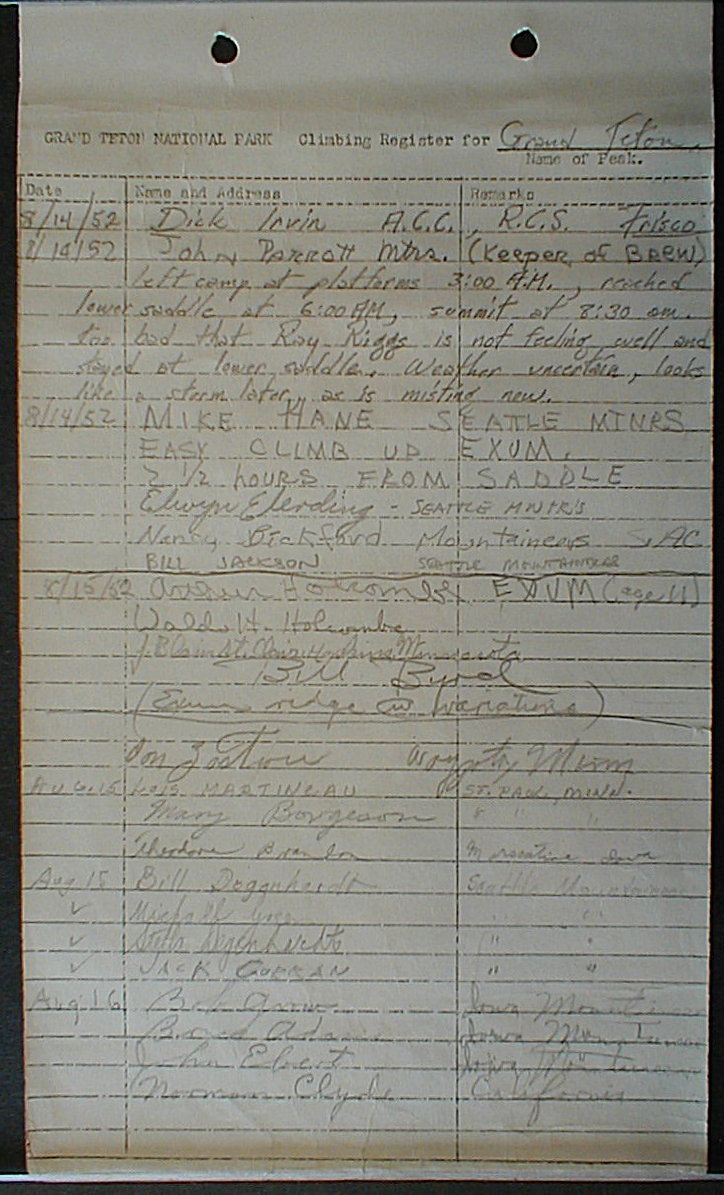 GRAND TETON NATIONAL PARK Climbing Register for Grand Teton
Name of Peak.
Date Name and Address Remarks
8/14/52 Dick Irvin A.C.C., R.C.S. Frisco
8/14/52 John Parrott Mtrs. (Keeper of BREW)
Left camp at platforms 3:00 A.M., reached
lower saddle at 6:00 AM, summit at 8:30 am.
too bad that Ray Riggs is not feeling well and
stayed at lower saddle. Weather uncertain, looks
like a storm later, as is misting now.
8/14/52 MIKE HANE SEATTLE MTNRS
EASY CLIMB UP EXUM.
2 1/2 HOURS FROM SADDLE
Elwyn Elerding - SEATTLE MNTR'S
Nancy Bickford Mountaineers SAC
BILL JACKSON SEATTLE MOUNTAINEERS
8/15/52 Arthur Holcombe EXUM (age 11)
Waldo H. Holcombe
Minnesota
Bill Byrd
(Exum ridge variations)
Don Minn
Aug. 15 Lois MARTINEAU ST. PAUL, MINN.
Mary Borgeson " " "
Theodore Muscatine Iowa
Aug 15 Bill Deggenhardt Seattle Mountaineers
✓ " "
✓ " "
✓ JACK " "
Aug 16 Bob Grow Iowa Mountaineers
Adams Iowa Mountaineers
John Ebert Iowa Mountaineers
Norman Clyde California